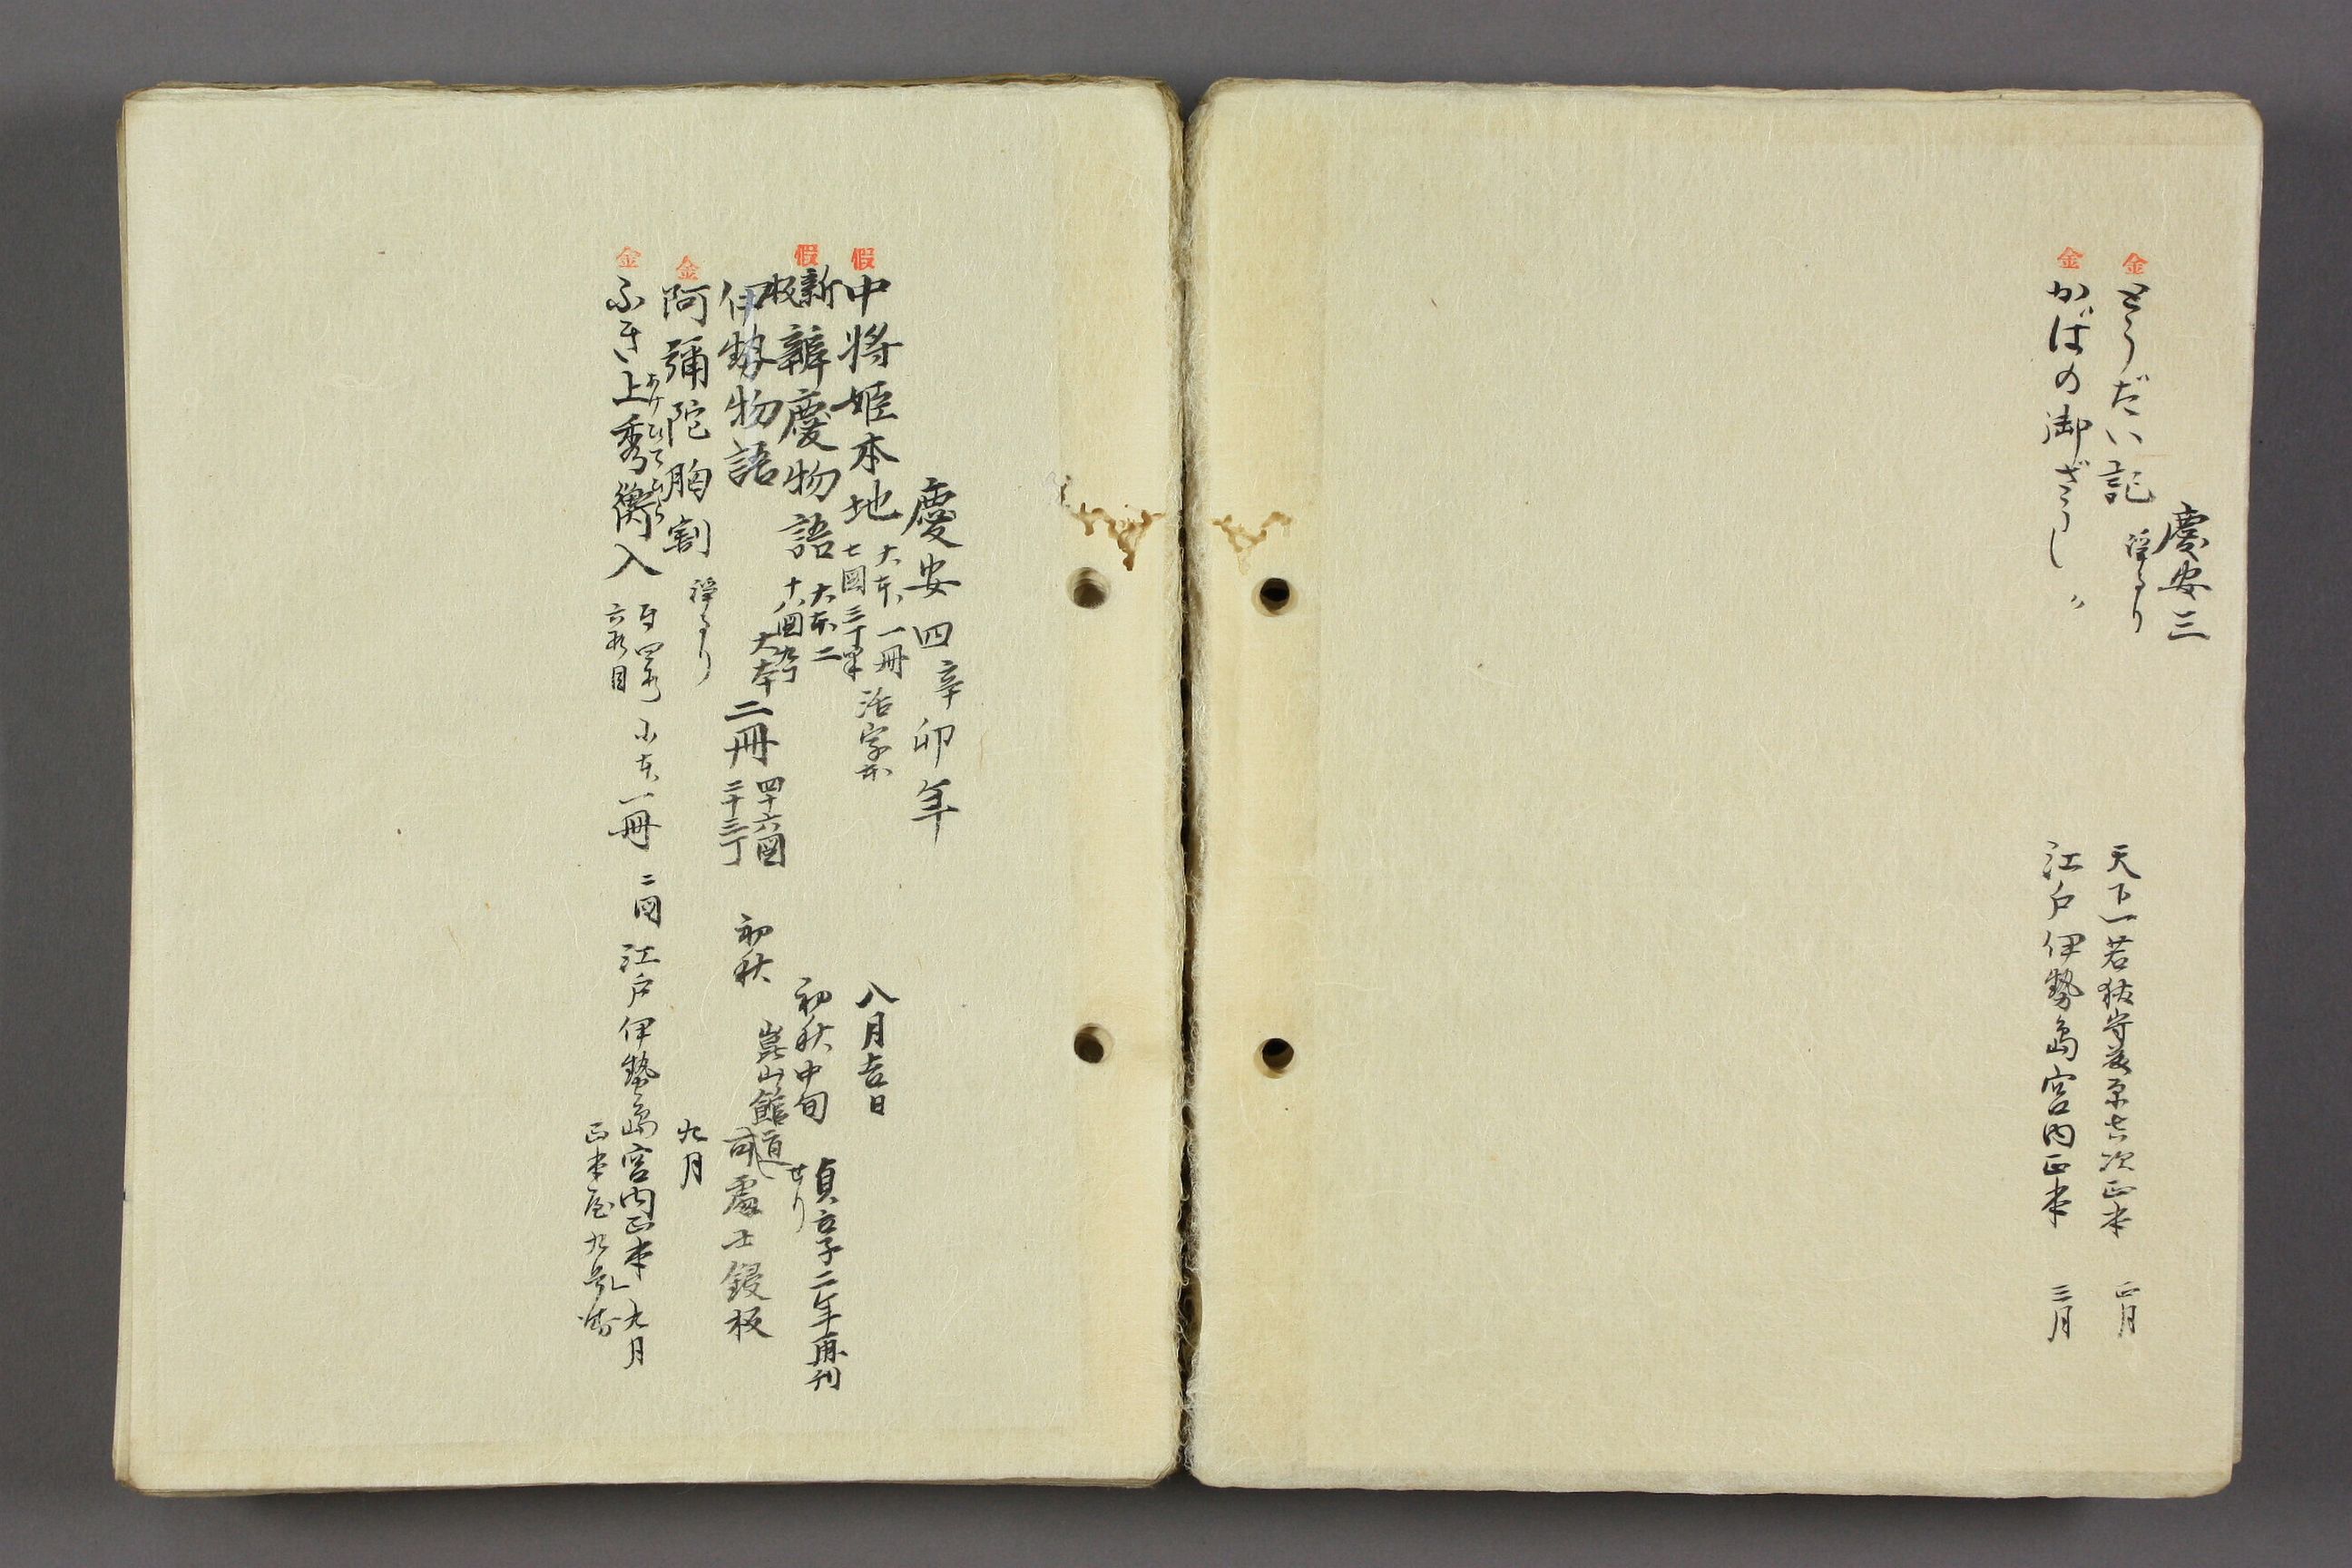 慶安三
金 とうだい記 浄るり 天下一若狭守藤原吉次正本 正月
金 かばの御ざうし 〃 江戸伊勢島宮内正本 三月
慶安四辛卯年
假 中将姫本地 大本一冊 七圖三丁半 活字本 八月吉日
假 新板 辨慶物語 大本二 十八圖 初秋中旬 貞享二年再刊せり
伊勢物語 大本 二冊 四十六図 二十三丁 初秋 崑山館道可處士鋟板
金 阿彌陀胸割 浄るり 九月
金 ふきあげ上秀衡入 小本一冊 二図 江戸伊勢島宮内正本 九月
六段目
正本屋九兵衛